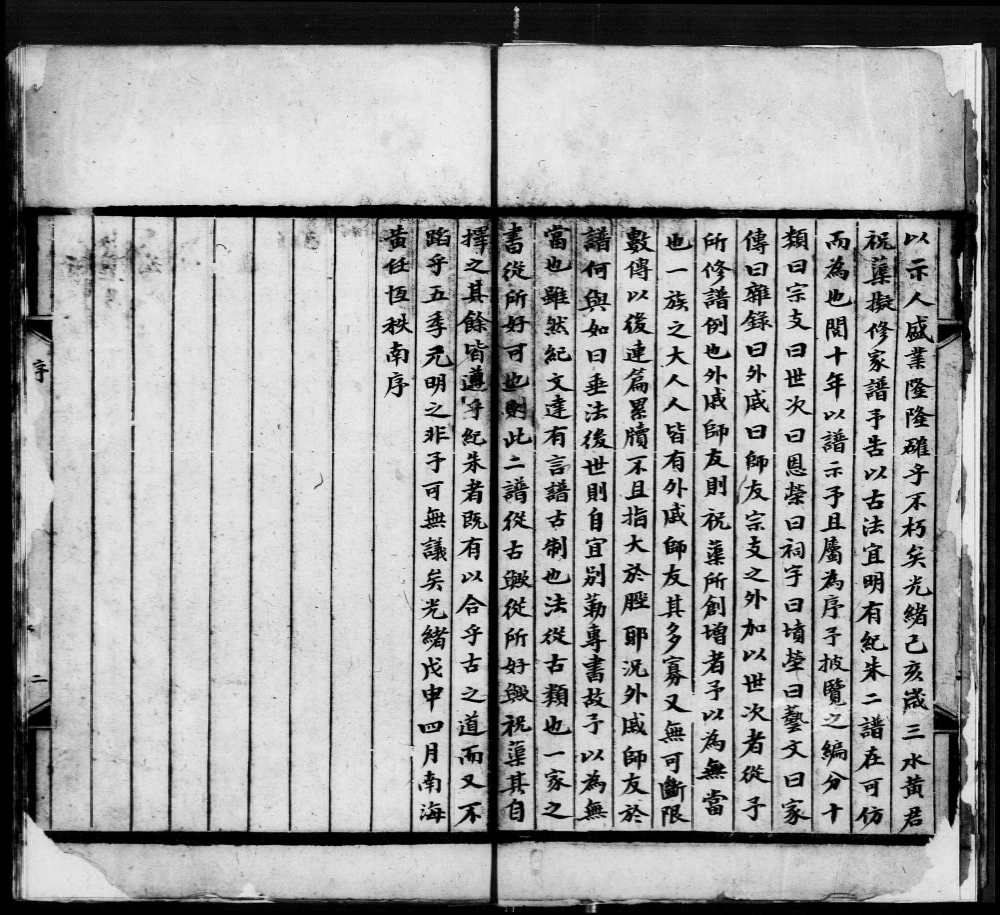 以示人盛業隆隆確乎不朽矣光緒己亥歲三水黃君
祝蕖擬修家譜予告以古法宜明有紀朱二譜在可仿
而為也閱十年以譜示予且屬為序予披覽之編分十
類曰宗支曰世次曰恩榮曰祠宇曰墳塋曰藝文曰家
傳曰雜錄曰外戚曰師友宗支之外加以世次者從予
所修譜例也外戚師友則祝蕖所創增者予以為無當
也一族之大人人皆有外戚師友其多寡又無可斷限
數傳以後連篇累牘不且指大於脛耶況外戚師友於
譜何與如曰垂法後世則自宜別勒專書故予以為無
當也雖然紀文達有言譜古制也法從古類也一家之
書從所好可也則此二譜從古歟從所好歟祝蕖其自
擇之其餘皆遵乎紀朱者既有以合乎古之道而又不
蹈乎五季元明之非予可無議矣光緒戊申四月南海
黃任恆秩南序
序
二